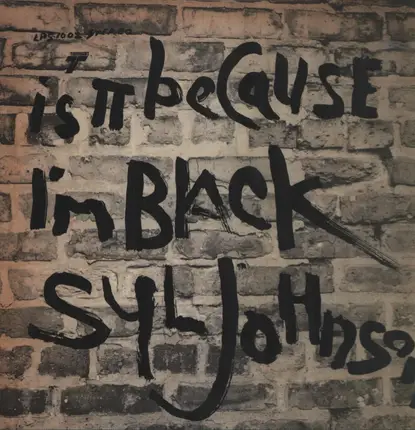 LPS1002 STEREO
is IT beCauSE
I'm BlAck
SYL JoHnson